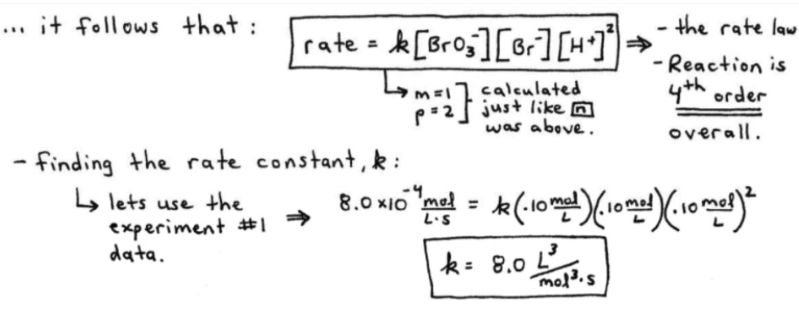 ... it follows that :
rate = k[BrO₃⁻][Br⁻][H⁺]² ⇒ - the rate law
- Reaction is
4th order
overall.
↳ m=1
p=2 ] calculated
just like n
was above.
- finding the rate constant, k :
↳ lets use the
experiment #1
data. ⇒ 8.0 x10⁻⁴ mol/L·s = k(.10 mol/L)(.10 mol/L)(.10 mol/L)²
k = 8.0 L³/mol³·s